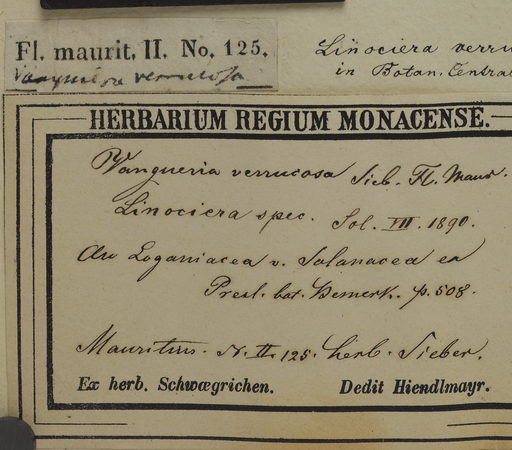 Fl. maurit. II. No. 125.
Vangueria verrucosa
Linociera verru
in Botan. Central
HERBARIUM REGIUM MONACENSE.
Vangueria verrucosa Sieb. Fl. Maur.
Linociera spec. Sol. VII. 1890.
An Loganiacea v. Solanacea ex
Presl. bot. Bemerk. p. 508.
Mauritius. N. II. 125. herb. Sieber.
Ex herb. Schwægrichen. Dedit Hiendlmayr.